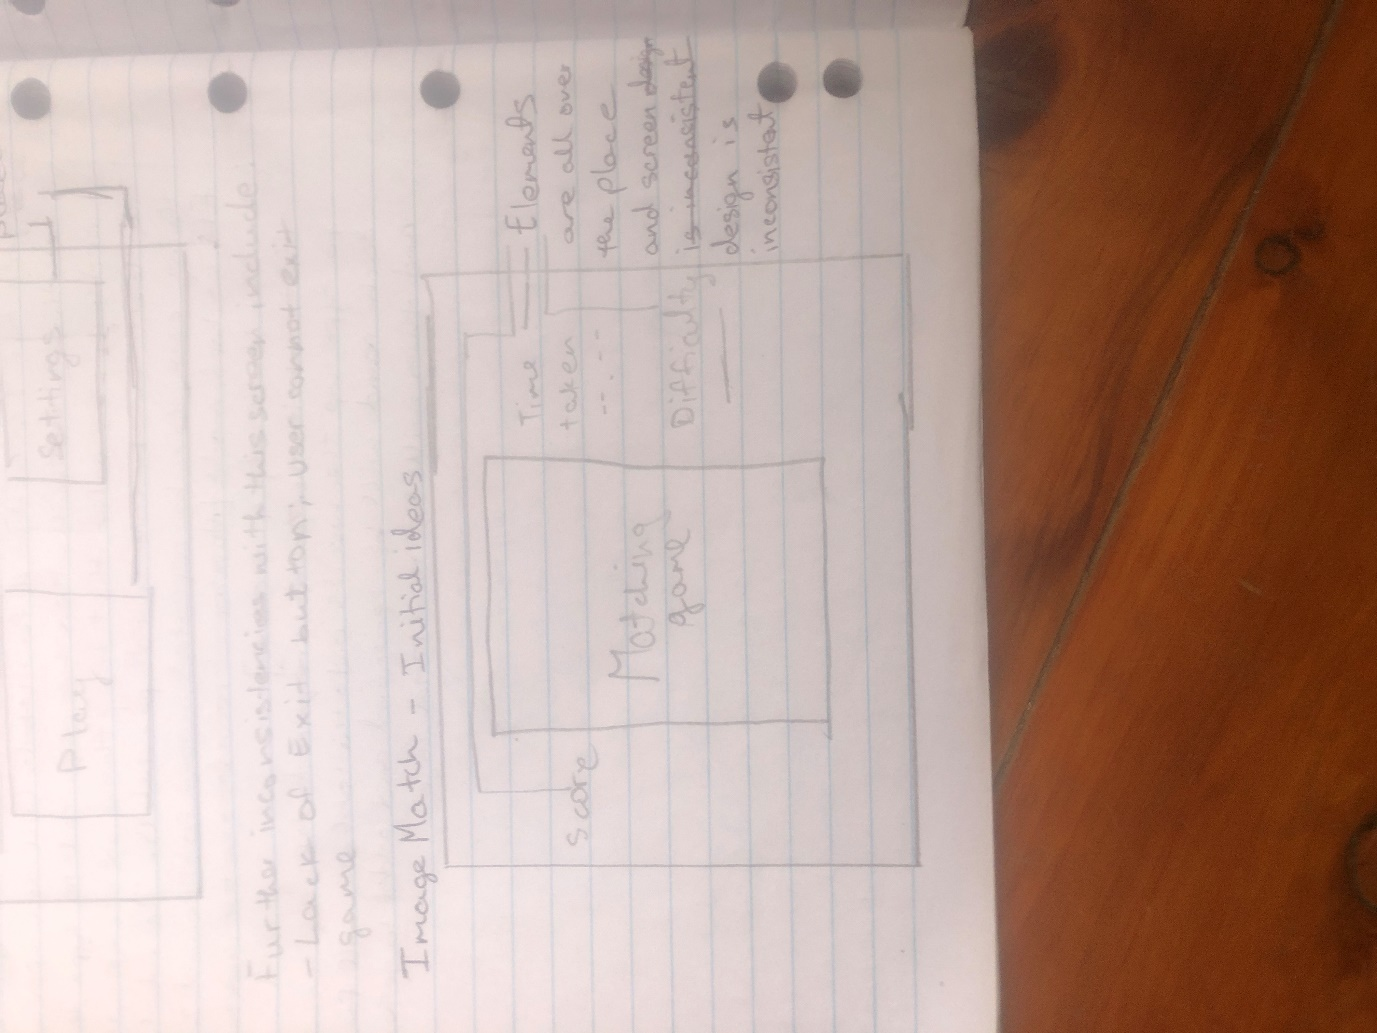 Play
Settings
Further inconsistencies with this screen include:
- Lack of Exit button; user cannot exit
game
Image Match - Initial ideas
Score
Matching
game
Time
taken
--:--
Difficulty
Elements
are all over
the place
and screen design
is inconsistent
design is
inconsistent